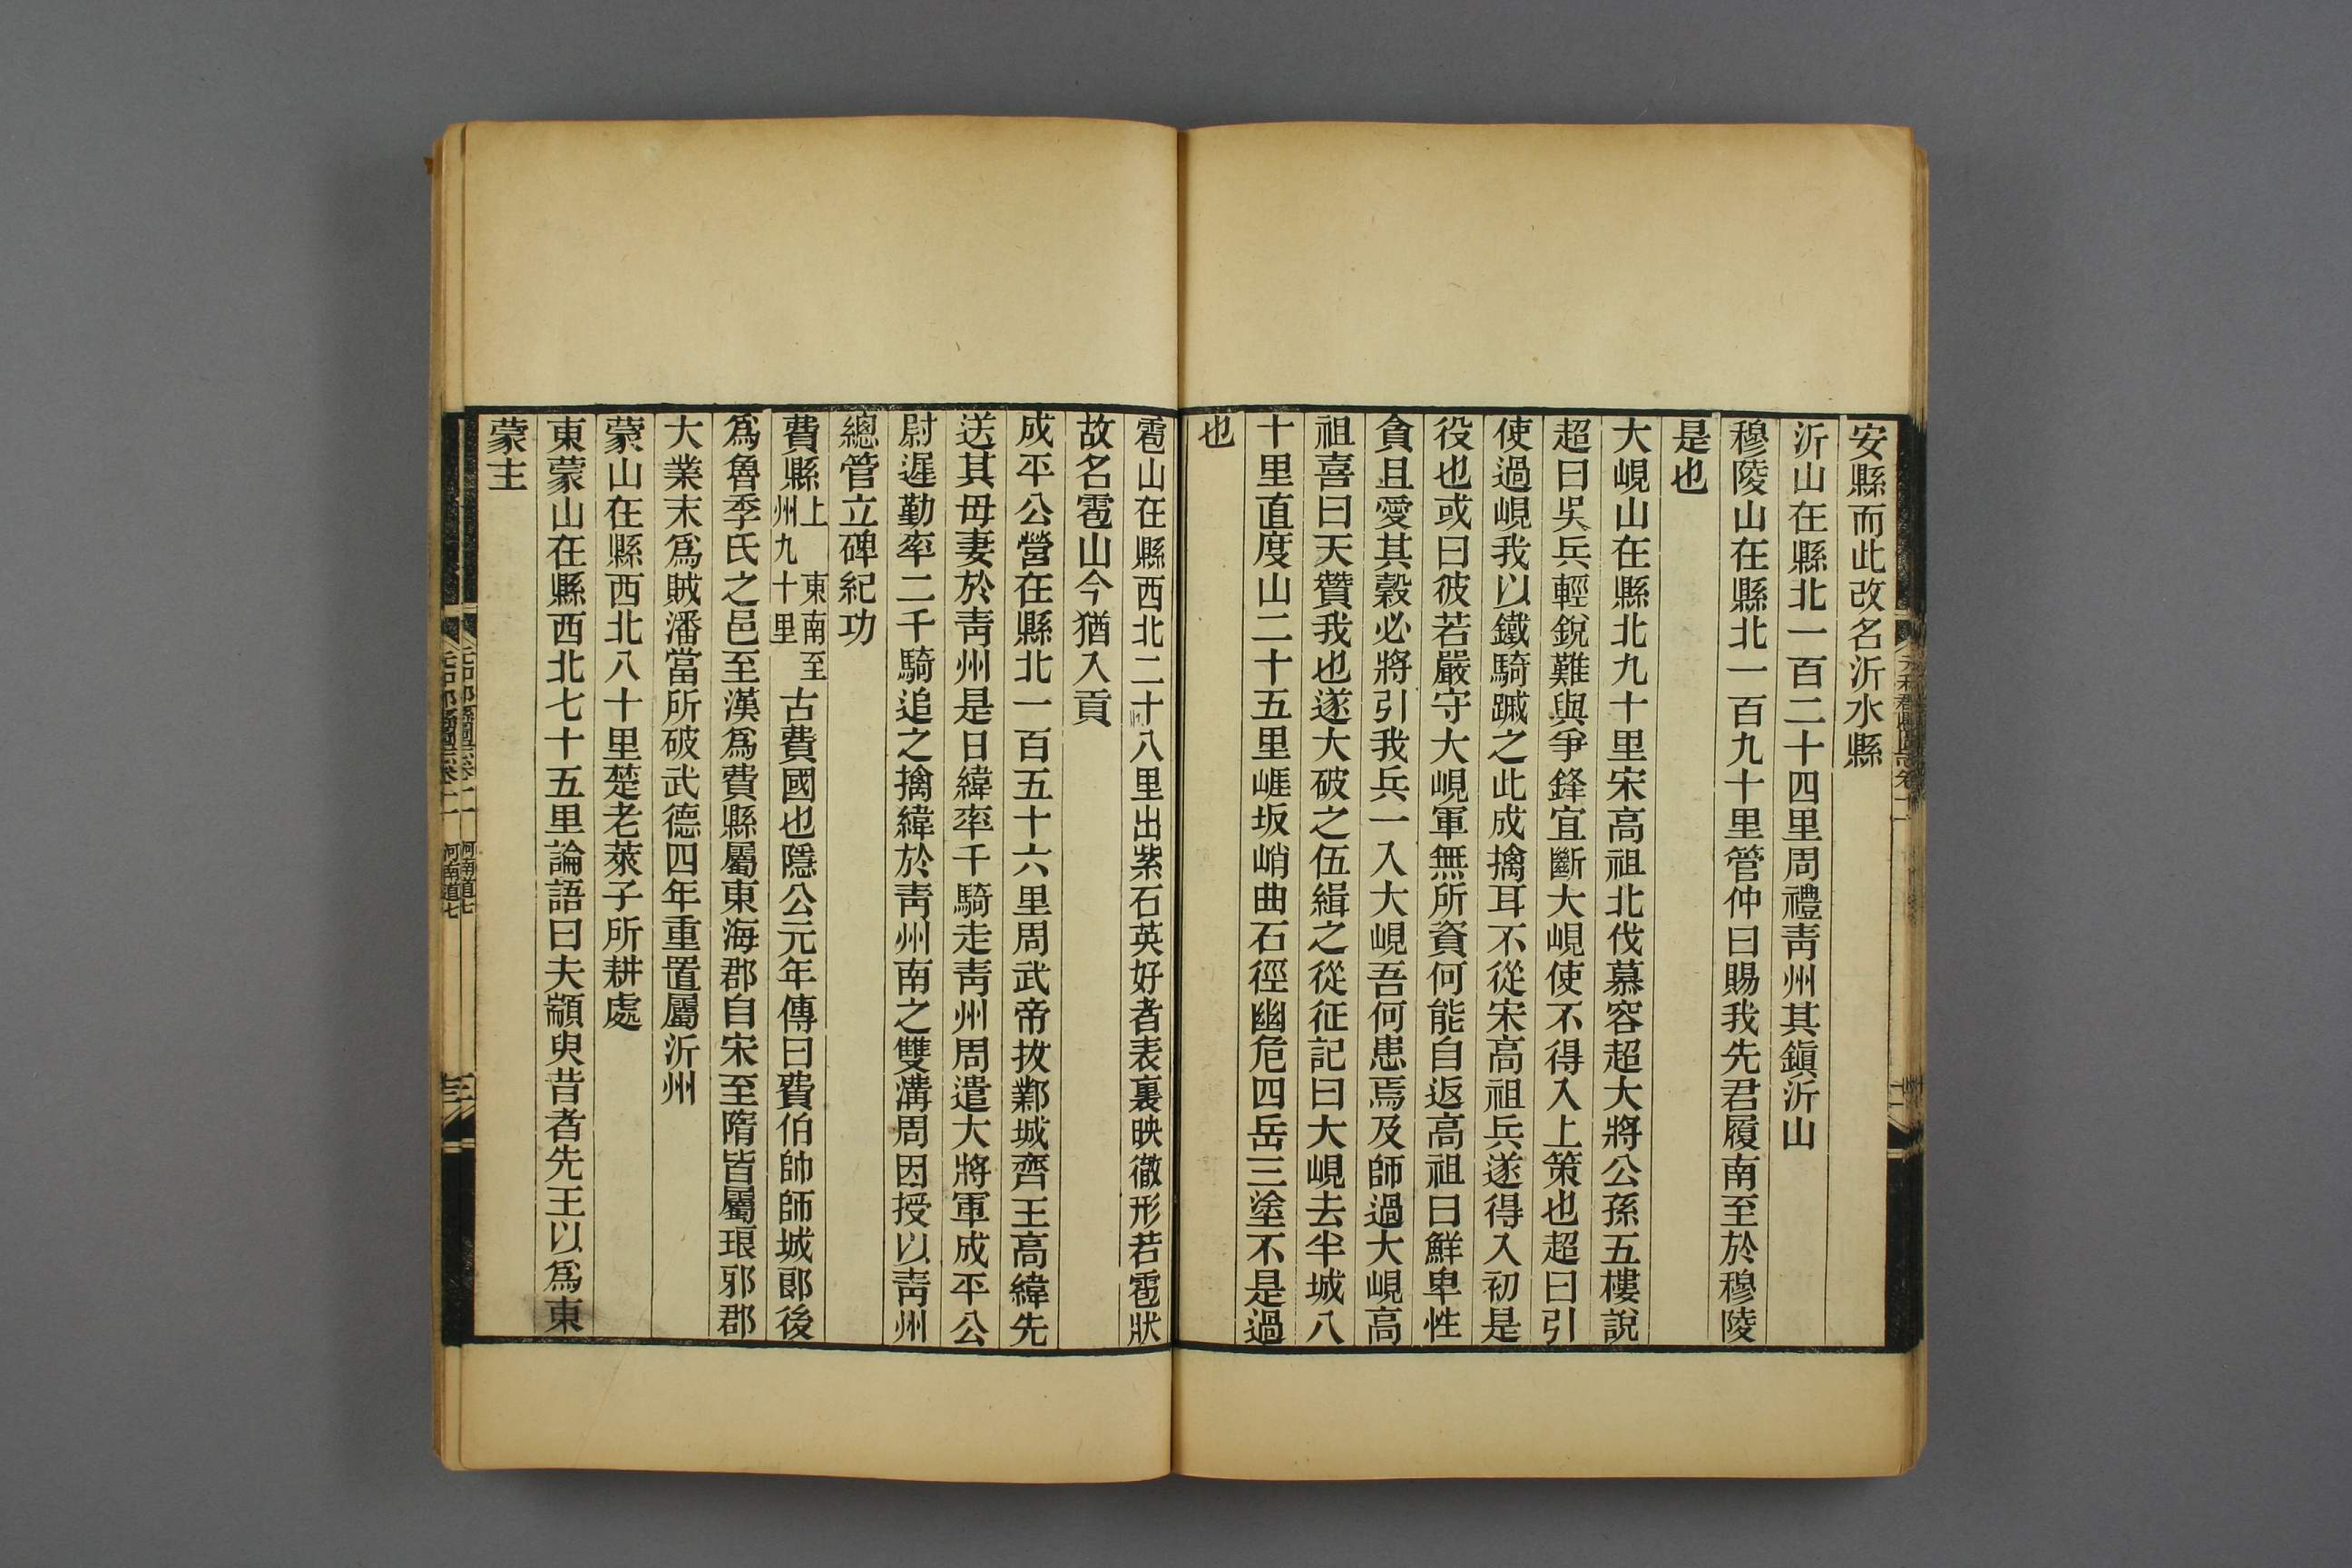 安縣而此改名沂水縣
沂山在縣北一百二十四里周禮靑州其鎭沂山
穆陵山在縣北一百九十里管仲曰賜我先君履南至於穆陵
是也
大峴山在縣北九十里宋高祖北伐慕容超大將公孫五樓說
超曰吳兵輕銳難與爭鋒宜斷大峴使不得入上策也超曰引
使過峴我以鐵騎蹴之此成擒耳不從宋高祖兵遂得入初是
役也或曰彼若嚴守大峴軍無所資何能自返高祖曰鮮卑性
貪且愛其穀必將引我兵一入大峴吾何患焉及師過大峴高
祖喜曰天贊我也遂大破之伍緝之從征記曰大峴去半城八
十里直度山二十五里崕坂峭曲石徑幽危四岳三塗不是過
也
雹山在縣西北二十八里出紫石英好者表裏映徹形若雹狀
故名雹山今猶入貢
成平公營在縣北一百五十六里周武帝拔鄴城齊王高緯先
送其母妻於靑州是日緯率千騎走靑州周遣大將軍成平公
尉遲勤率二千騎追之擒緯於靑州南之雙溝周因授以靑州
總管立碑紀功
費縣上 東南至州九十里古費國也隱公元年傳曰費伯帥師城郞後
爲魯季氏之邑至漢爲費縣屬東海郡自宋至隋皆屬琅邪郡
大業末爲賊潘當所破武德四年重置屬沂州
蒙山在縣西北八十里楚老萊子所耕處
東蒙山在縣西北七十五里論語曰夫顓臾昔者先王以爲東
蒙主
元和郡縣圖志卷十一
河南道七